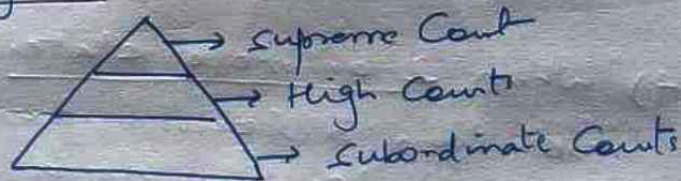 → Supreme Court
→ High Courts
→ Subordinate Courts